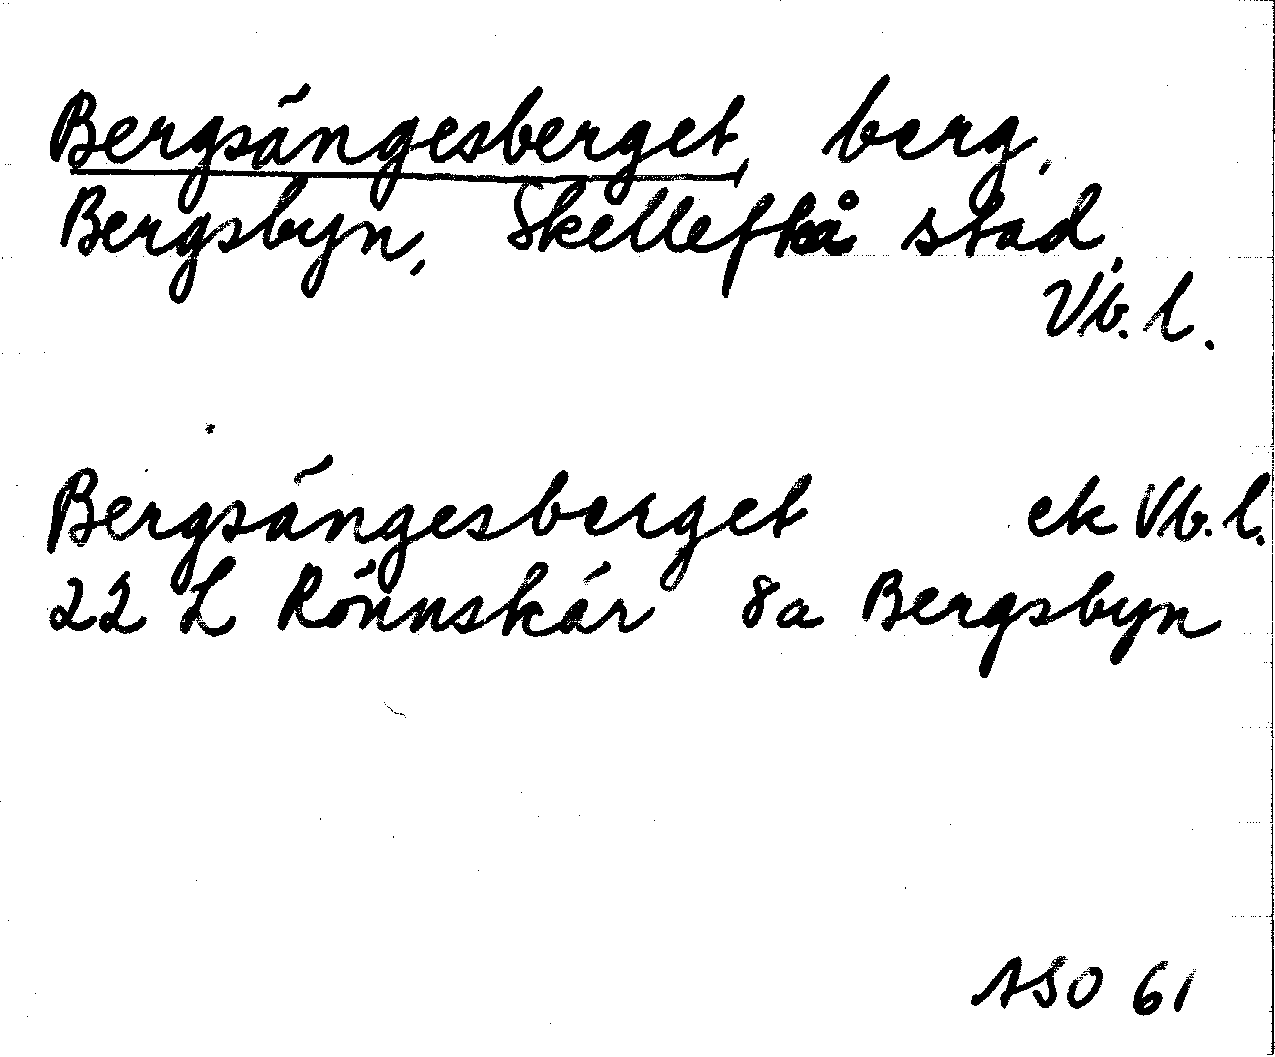 Bergsängesberget, berg,
Bergsbyn, Skellefteå stad,
Vb. l.
Bergsängesberget ek Vb. l.
22 L Rönnskär 8a Bergsbyn
ASO 61